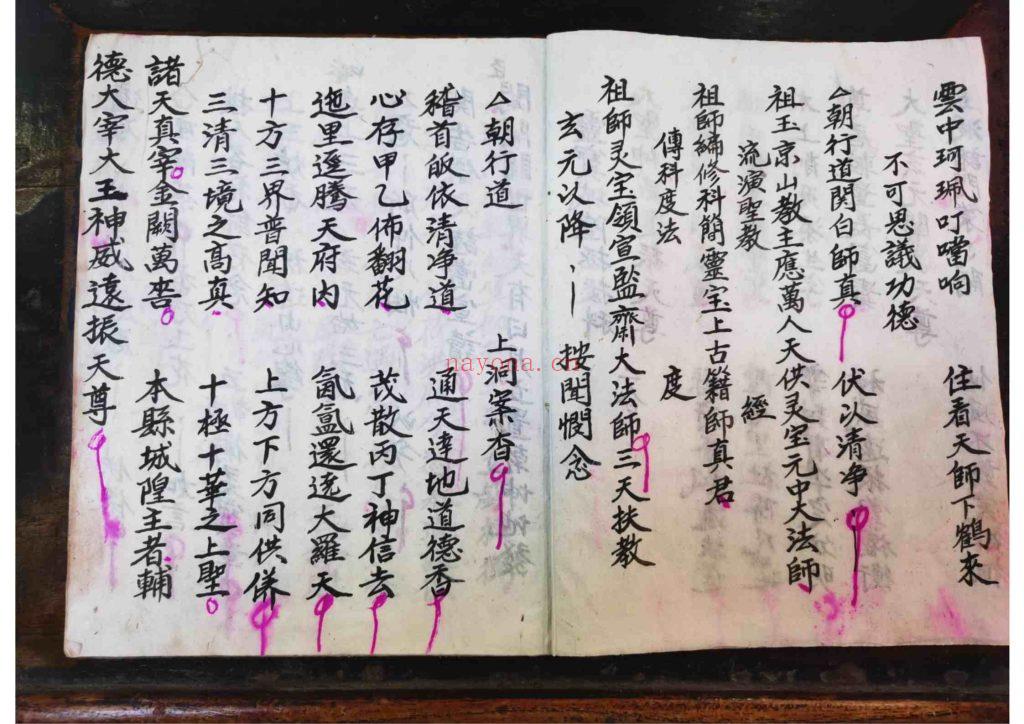 雲中珂珮叮噹响　住看天師下鶴來
不可思議功德
△朝行道関白師真　伏以清净
祖玉京山教主應萬人天供灵宝元中大法師
流演聖教　經
祖師編修科簡靈宝上古籍師真君
傳科度法　度
祖師灵宝領宣監齋大法師三天扶教
玄元以降〻　按聞憫念
△朝行道　上洞案香
稽首皈依清净道　通天達地道德香
心存甲乙佈翻花　茂散丙丁神信去
迤里遥騰天府内　氤氳還遶大羅天
十方三界普聞知　上方下方同供併
三清三境之髙真　十極十華之上聖
諸天真宰金闕萬　本縣城隍王者輔
德大宰大王神威遠振天尊
nayona.cn